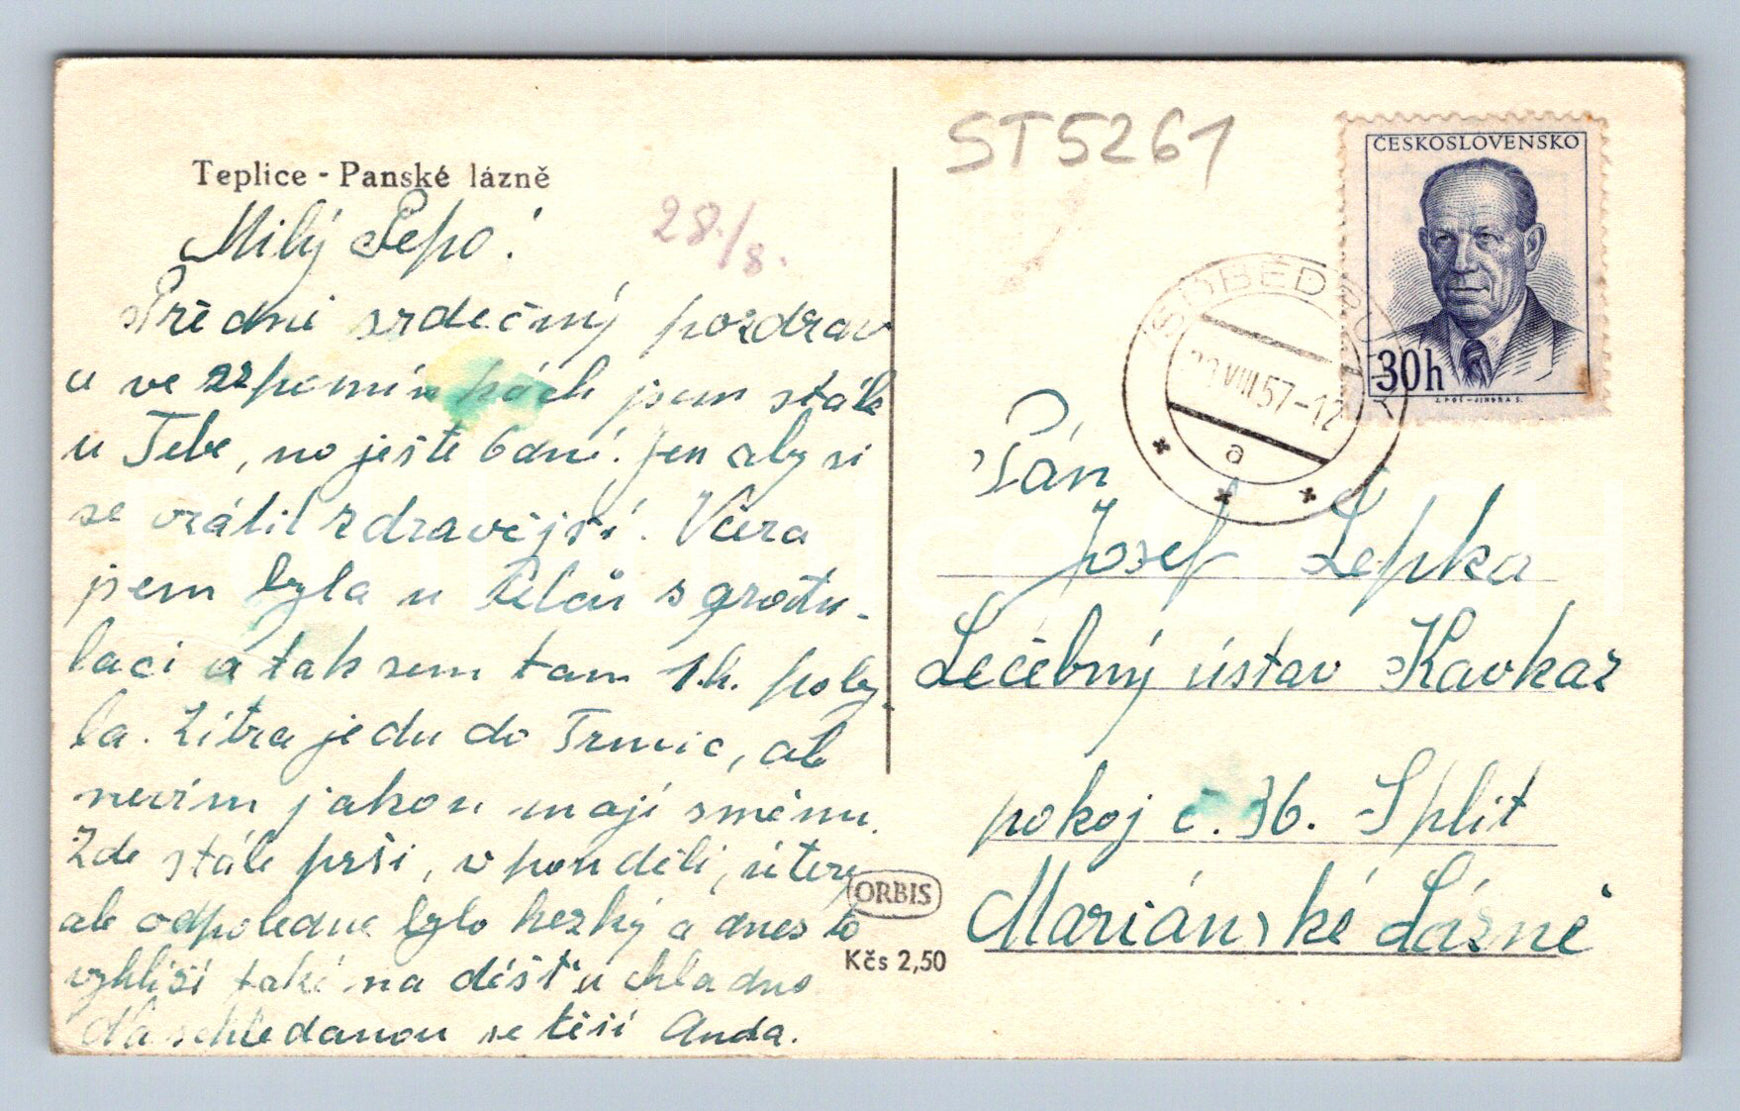 Teplice - Panské lázně
ST5261
28./8.
Milý Pepo!
Předně srdečný pozdrav
a ve vzpomínkách jsem stále
u Tebe, no ještě 6 dní. Jen aby si
se vrátil zdravější. Včera
jsem byla u s gratu-
laci a tak sem tam 1.h. poby-
la. Zítra jedu do Trmic, ale
nevím jakou mají směnu.
Zde stále prší, v pondělí, úterý
ale odpoledne bylo hezky a dnes to
vyhlíží také na déšť a chladno
Na schledanou se těší Anda.
ORBIS
Kčs 2,50
ČESKOSLOVENSKO
30h
SOBĚDRUHY 1
VIII 57-12
a
Pán
Josef Lepka
Léčebný ústav Kavkaz
pokoj č. 36. Split
Mariánské Lázně